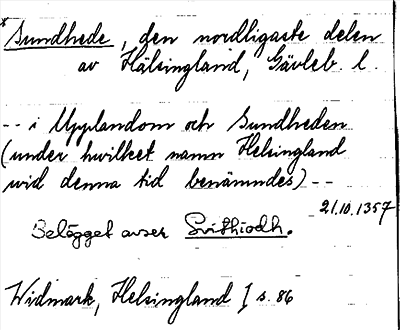 *Sundhede, den nordligaste delen
av Hälsingland, Gävleb. l.
-- i Upplandom och Sundheden
(under hwilket namn Helsingland
wid denna tid benämndes) --
21.10.1357
Belägget avser Svithiodh.
Widmark, Helsingland I s. 86